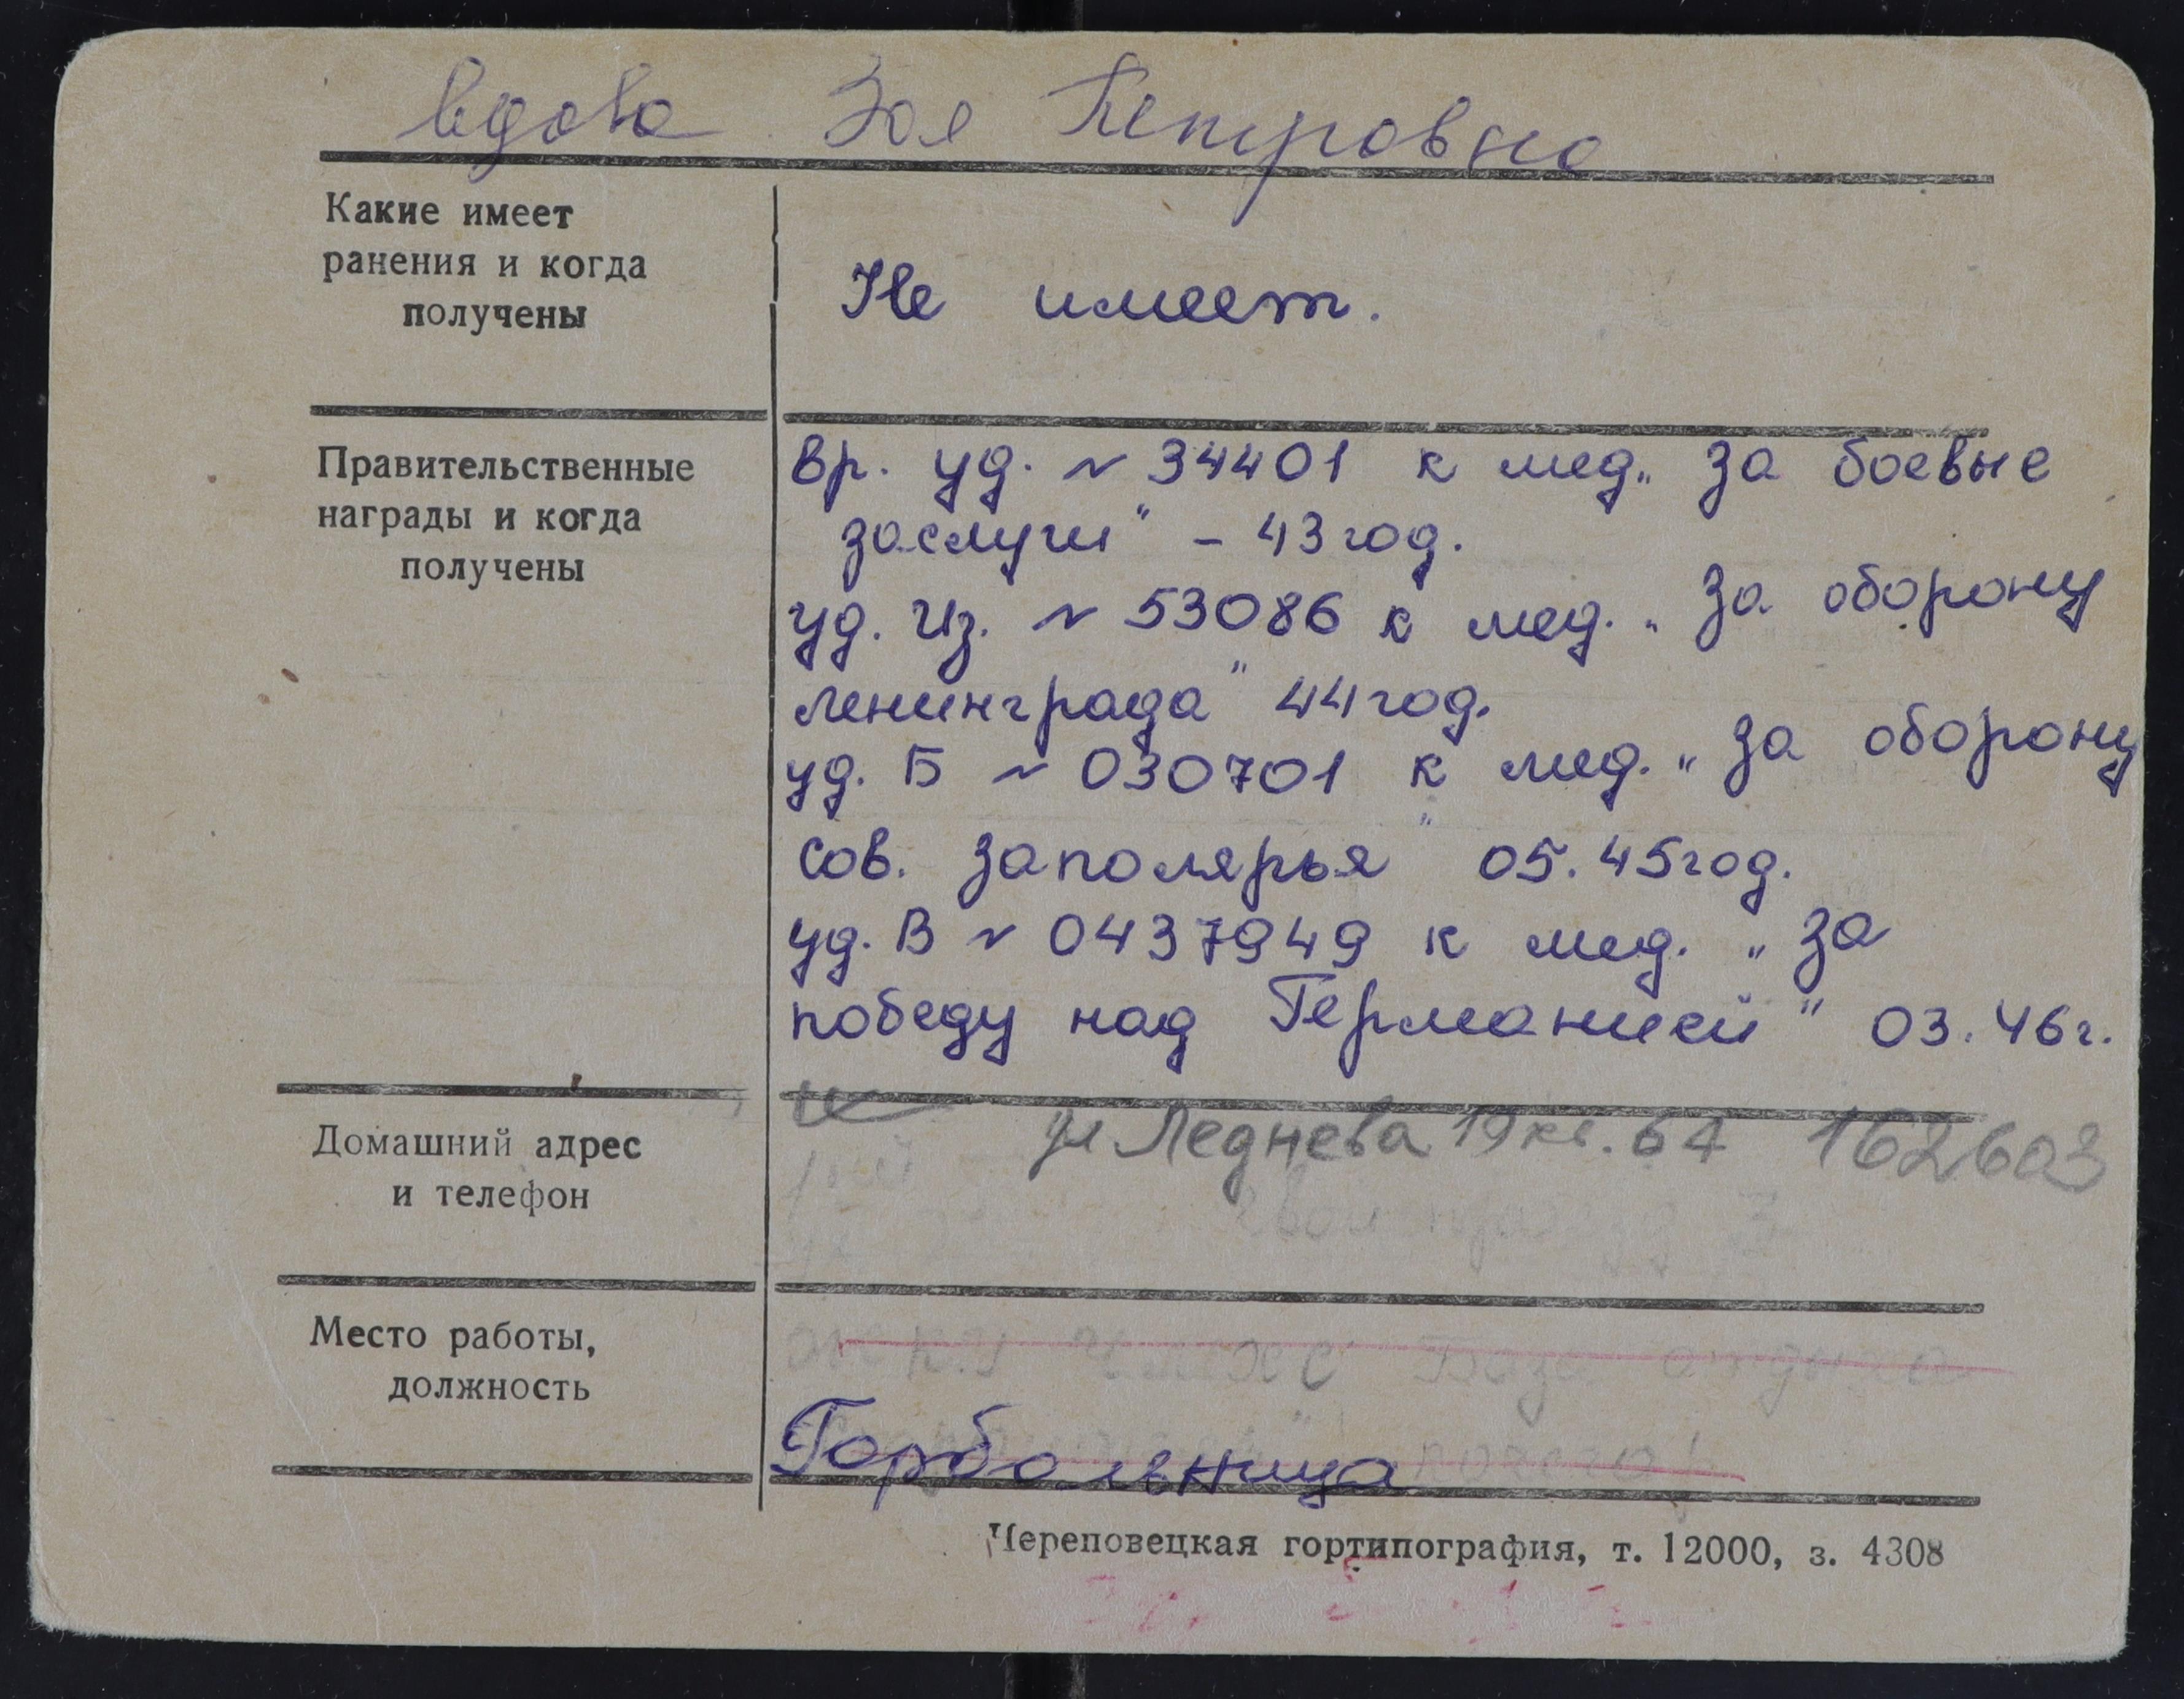 вдова Зоя Петровна
Какие имеет
ранения и когда
получены
Не имеет.
Правительственные
награды и когда
получены
Вр. уд. № 34401 к мед. „За боевые
заслуги" – 43 год.
уд. Из. № 53086 к мед. „За оборону
ленинграда" 44 год.
уд. Б № 030701 к мед. „За оборону
сов. заполярья" 05.45 год.
уд. В № 0437949 к мед. „За
победу над Германией" 03.46 г.
Домашний адрес
и телефон
ул Леднева 19 кв. 64 162603
Место работы,
должность
База отдыха
Горбольница
Череповецкая гортипография, т. 12000, з. 4308